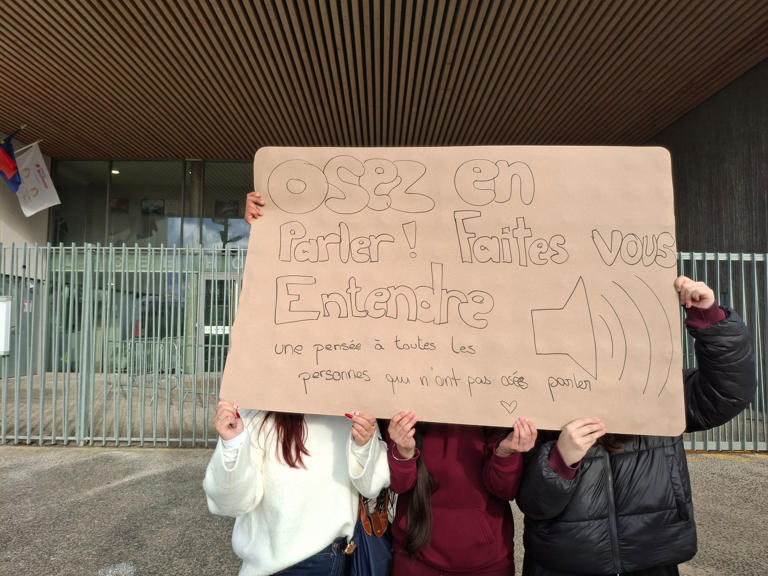 osez en
Parler ! Faites vous
Entendre
une pensée à toutes les
personnes qui n'ont pas osés parler